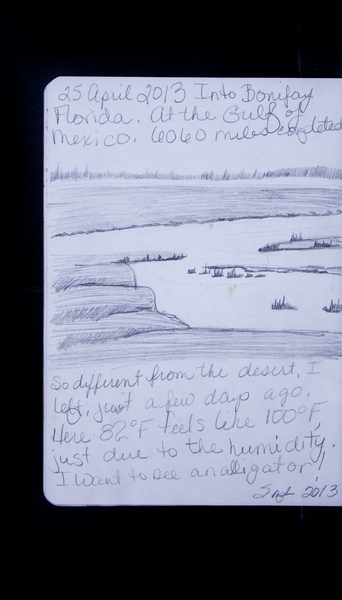 25 April 2013 Into Bonifay
Florida. At the Gulf of
Mexico. 6060 miles completed
So different from the desert, I
left, just a few days ago.
Here 82°F feels like 100°F,
just due to the humidity.
I want to see an alligator!
2013